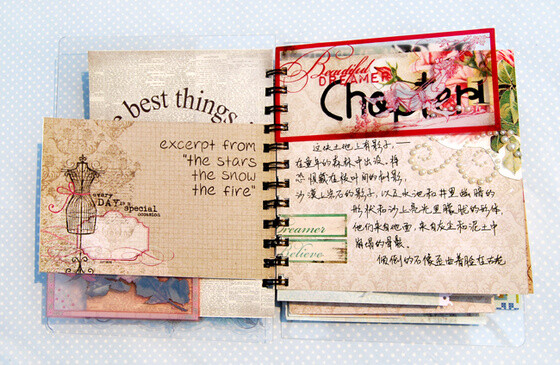 e best things
excerpt from
"the stars
the snow
the fire"
every
DAY a
special
occasion
Beautiful
DREAMER
Chapter
这块土地上有影子，一
在童年的森林中出没，将
恐惧藏在枝叶间的倒影，
沙漠上岩石的影子，以及水池和井里幽暗的
形状和沙上亮光里朦胧的形体，
他们来自地面，来自灰尘和泥土中
崩塌的骨骸
倾倒的石像歪曲着脸在
Dreamer
Believe